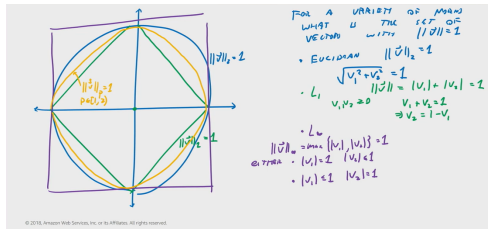 FOR A VARIETY OF NORMS
WHAT IS THE SET OF
VECTORS WITH ||v⃗||=1
• EUCLIDEAN ||v⃗||₂=1
√(v₁²+v₂²) =1
• L₁ ||v⃗|| = |v₁|+|v₂| = 1
v₁,v₂≥0 v₁+v₂=1
⇒ v₂=1-v₁
• L∞
||v⃗||∞ =max{|v₁|,|v₂|}=1
EITHER • |v₁|=1 |v₂|≤1
• |v₁|≤1 |v₂|=1
||v⃗||₂=1
||v⃗||ₚ=1
p∈(1,2)
||v⃗||₁=1
© 2018, Amazon Web Services, Inc. or its Affiliates. All rights reserved.